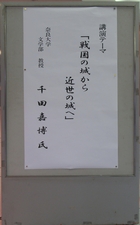 講演テーマ
「戦国の城から
近世の城へ」
奈良大学
文学部 教授
千田嘉博 氏